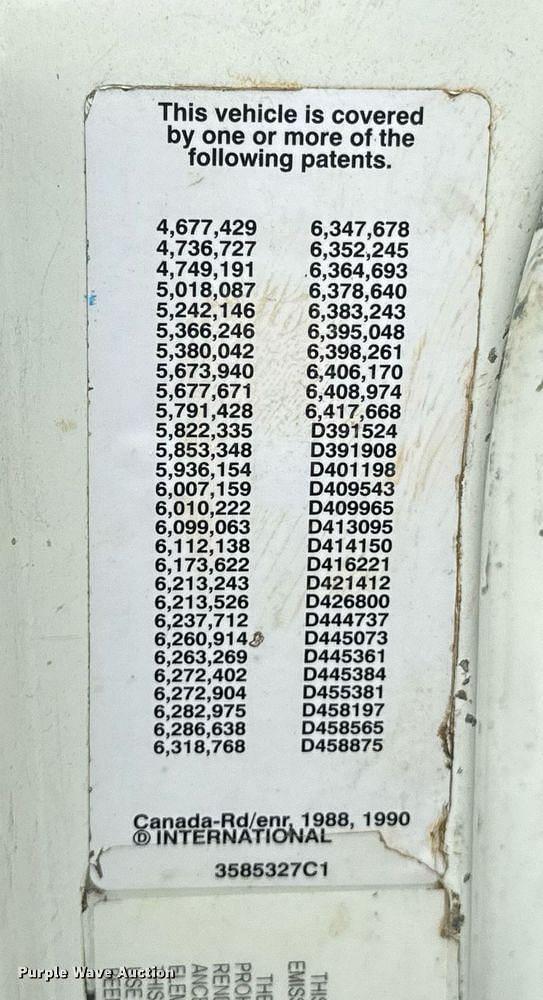 This vehicle is covered
by one or more of the
following patents.
4,677,429 6,347,678
4,736,727 6,352,245
4,749,191 6,364,693
5,018,087 6,378,640
5,242,146 6,383,243
5,366,246 6,395,048
5,380,042 6,398,261
5,673,940 6,406,170
5,677,671 6,408,974
5,791,428 6,417,668
5,822,335 D391524
5,853,348 D391908
5,936,154 D401198
6,007,159 D409543
6,010,222 D409965
6,099,063 D413095
6,112,138 D414150
6,173,622 D416221
6,213,243 D421412
6,213,526 D426800
6,237,712 D444737
6,260,914 D445073
6,263,269 D445361
6,272,402 D445384
6,272,904 D455381
6,282,975 D458197
6,286,638 D458565
6,318,768 D458875
Canada-Rd/enr, 1988, 1990
© INTERNATIONAL
3585327C1
THIS
EMIS
THE
PROH
REN
ANC
ELEM
THIS
USE
BEE
Purple Wave Auction